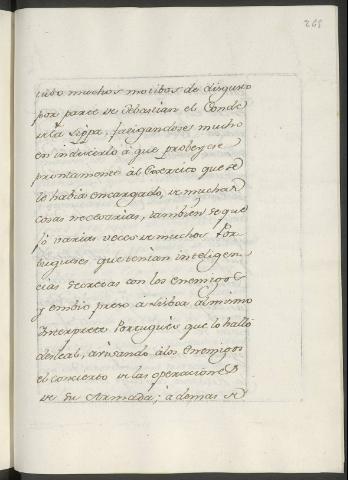 265
tubo muchos motibos de disgusto
por parte de Sebastian el Conde
de la Lippa, fatigandose mucho
en indicirlo á que probeyese
prontamente al Exercito que se
le habia encargado, de muchas
cosas necesarias, tambien se que
jó varias veces de muchos Por-
tugueses que tenian inteligen-
cias secretas con los enemigos
y embio preso á Lisboa al mismo
Interprete Portugués que lo halló
desleal, avisando á los Enemigos
el concierto de las operaciones
de su Armada; ademas de